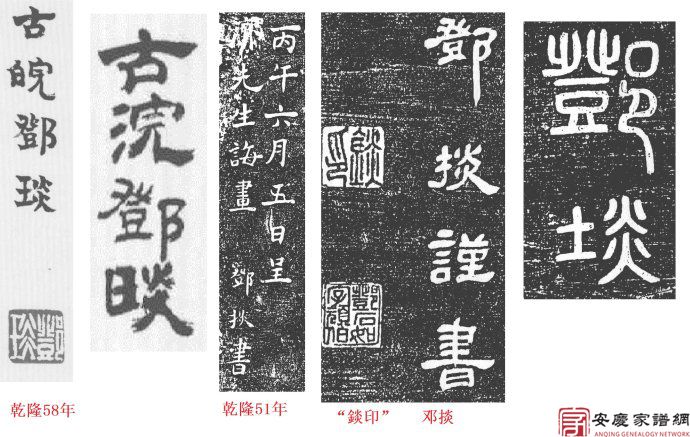 古皖鄧琰
古浣鄧晱
丙午六月五日呈
先生誨畫 鄧掞書
鄧掞謹書
錟印
鄧埮
乾隆58年
乾隆51年
“錟印” 邓掞
安慶家譜網
ANQING GENEALOGY NETWORK